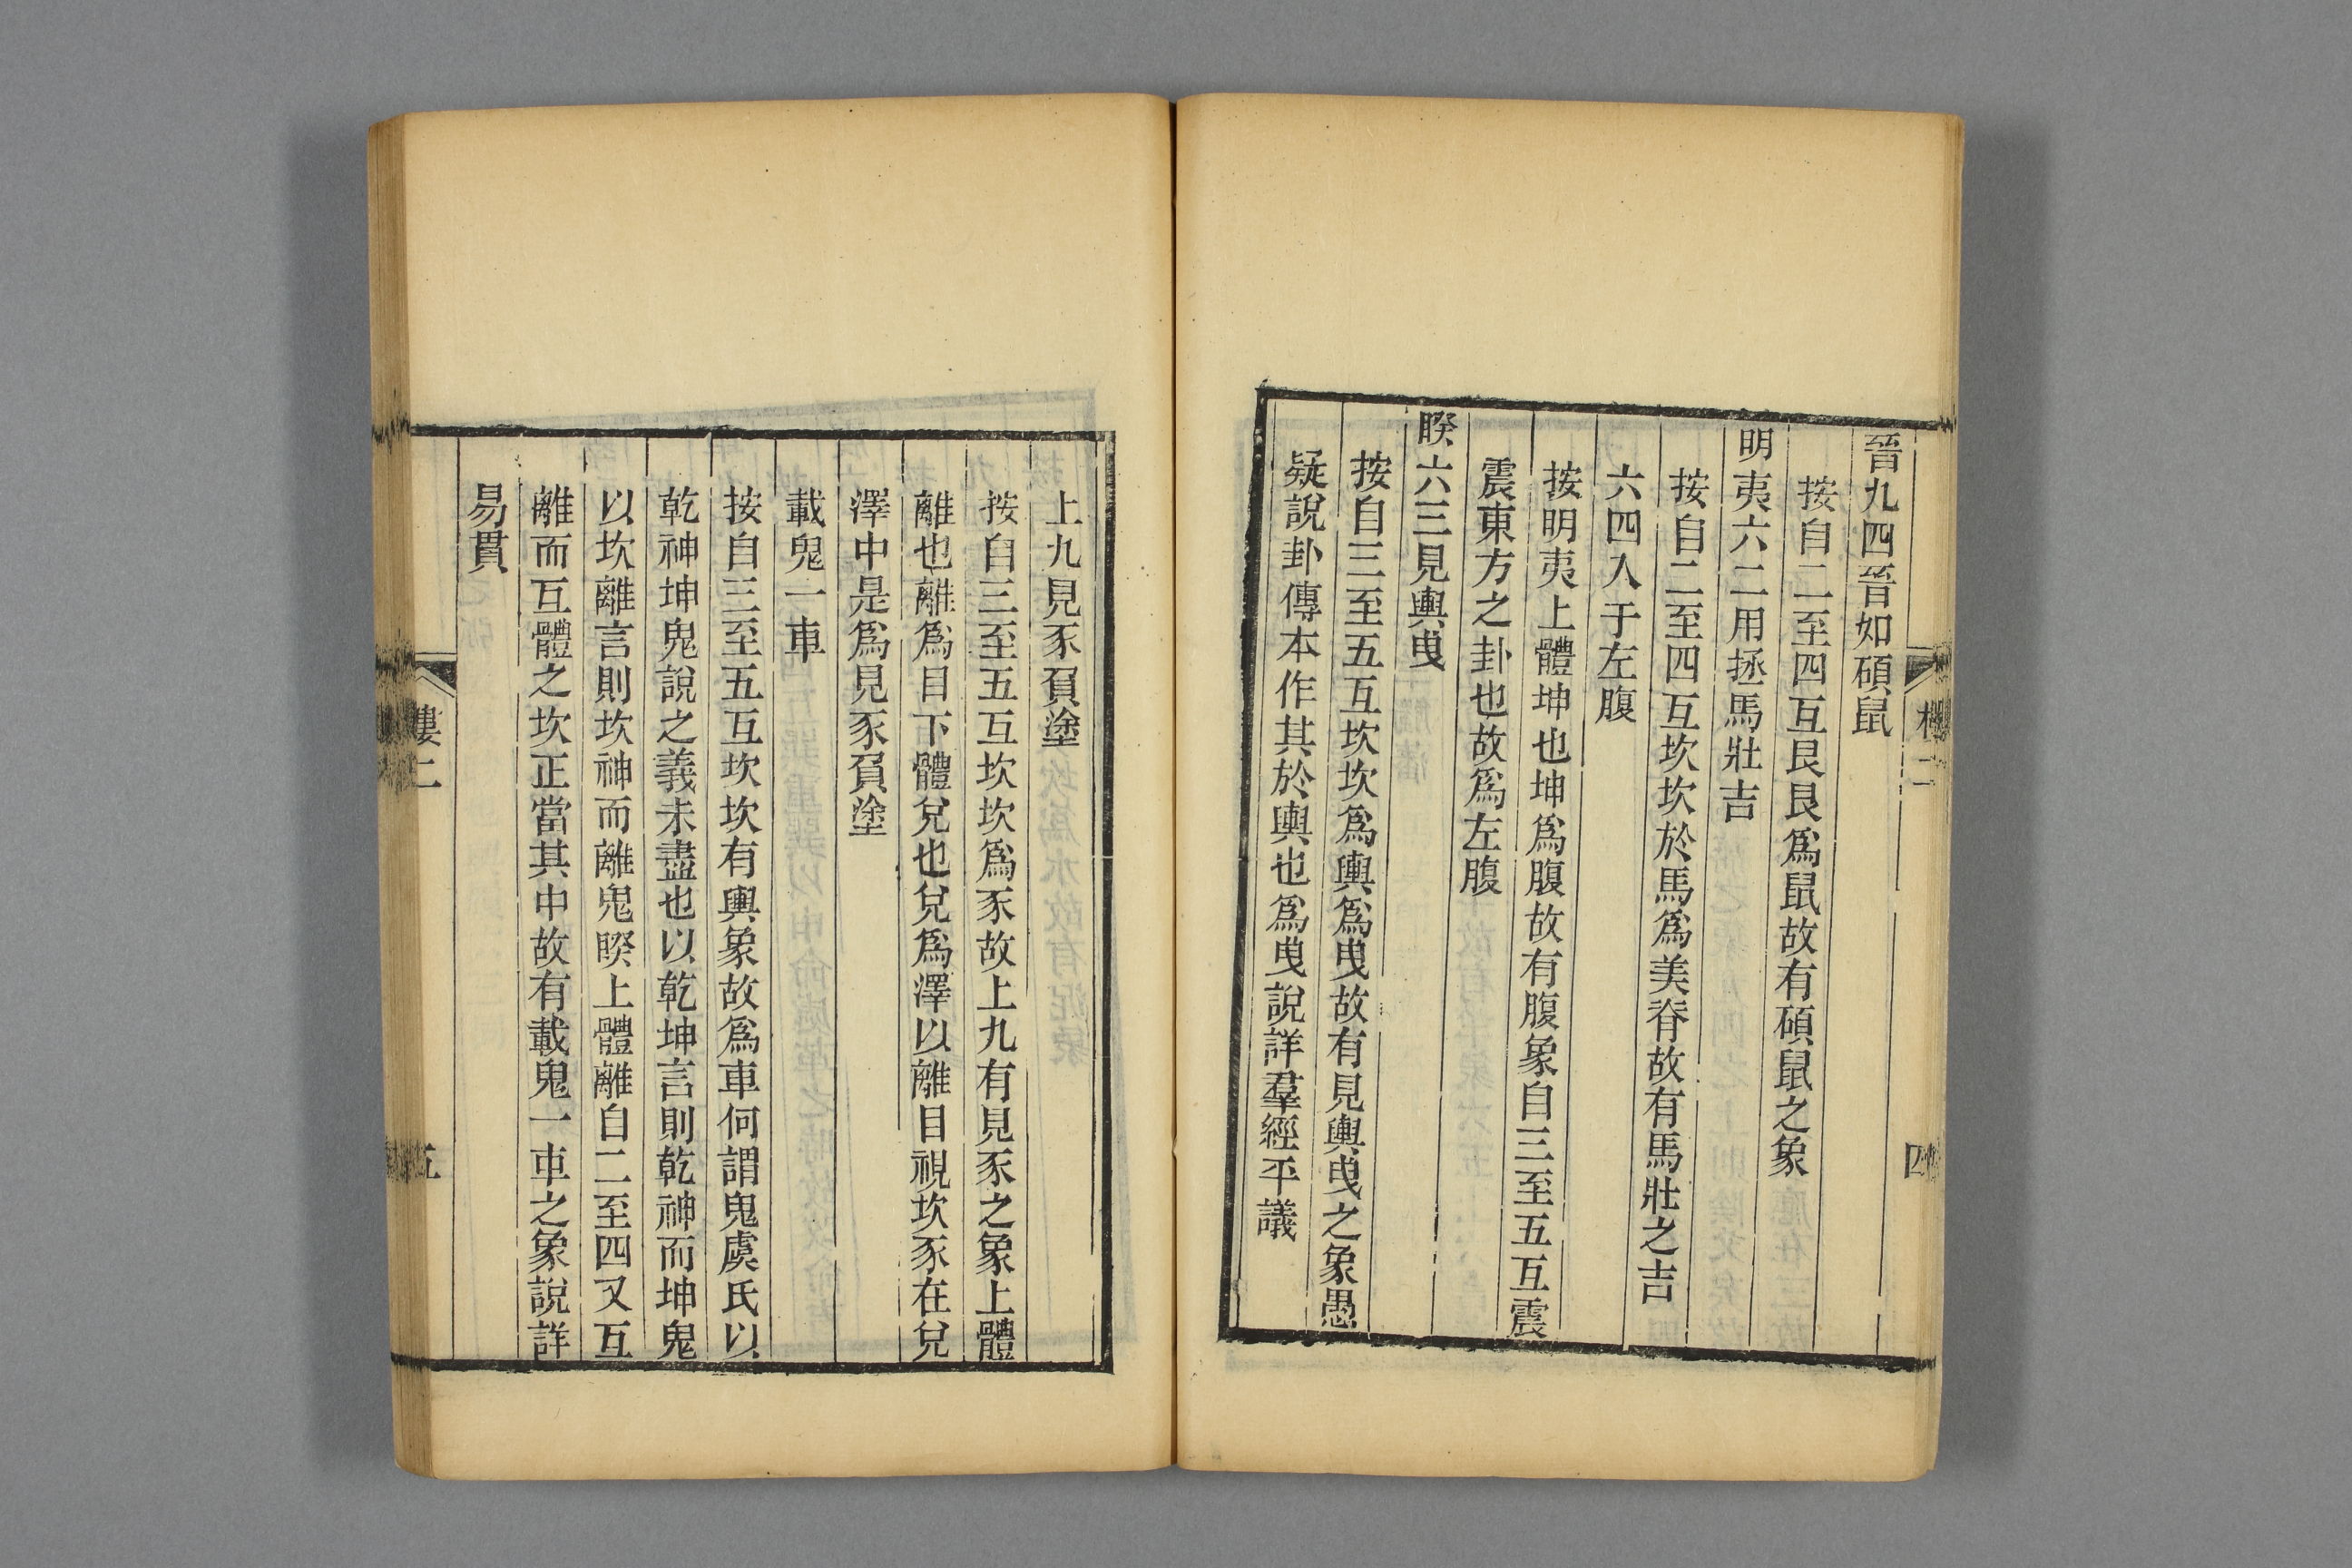 晉九四晉如碩鼠
按自二至四互艮艮爲鼠故有碩鼠之象
明夷六二用拯馬壯吉
按自二至四互坎坎於馬爲美脊故有馬壯之吉
六四入于左腹
按明夷上體坤也坤爲腹故有腹象自三至五互震
震東方之卦也故爲左腹
睽六三見輿曳
按自三至五互坎坎爲輿爲曳故有見輿曳之象愚
疑說卦傳本作其於輿也爲曳說詳羣經平議
四
上九見豕負塗
按自三至五互坎坎爲豕故上九有見豕之象上體
離也離爲目下體兌也兌爲澤以離目視坎豕在兌
澤中是爲見豕負塗
載鬼一車
按自三至五互坎坎有輿象故爲車何謂鬼虞氏以
乾神坤鬼說之義未盡也以乾坤言則乾神而坤鬼
以坎離言則坎神而離鬼睽上體離自二至四又互
離而互體之坎正當其中故有載鬼一車之象說詳
易貫
樓二
五